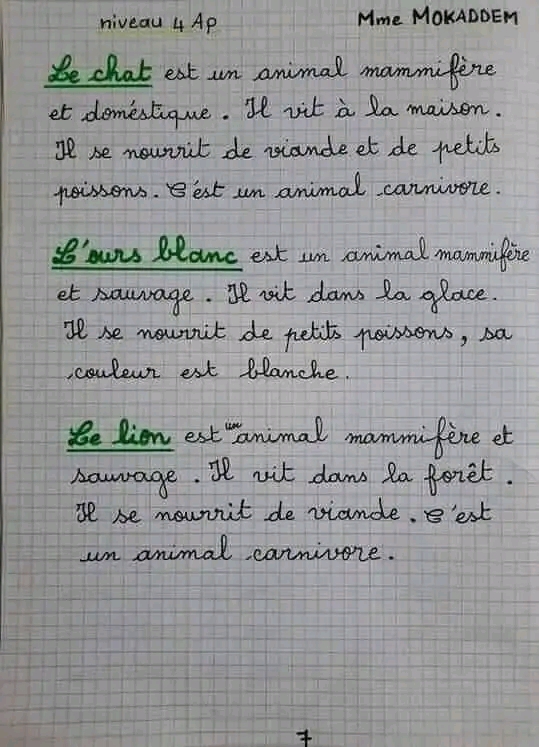 niveau 4 Ap
Mme MOKADDEM
Le chat est un animal mammifère
et doméstique. Il vit à la maison.
Il se nourrit de viande et de petits
poissons. C'ést un animal carnivore.
L'ours blanc est un animal mammifère
et sauvage. Il vit dans la glace.
Il se nourrit de petits poissons, sa
couleur est blanche.
Le lion est un animal mammifère et
sauvage. Il vit dans la forêt.
Il se nourrit de viande. C'est
un animal carnivore.
7